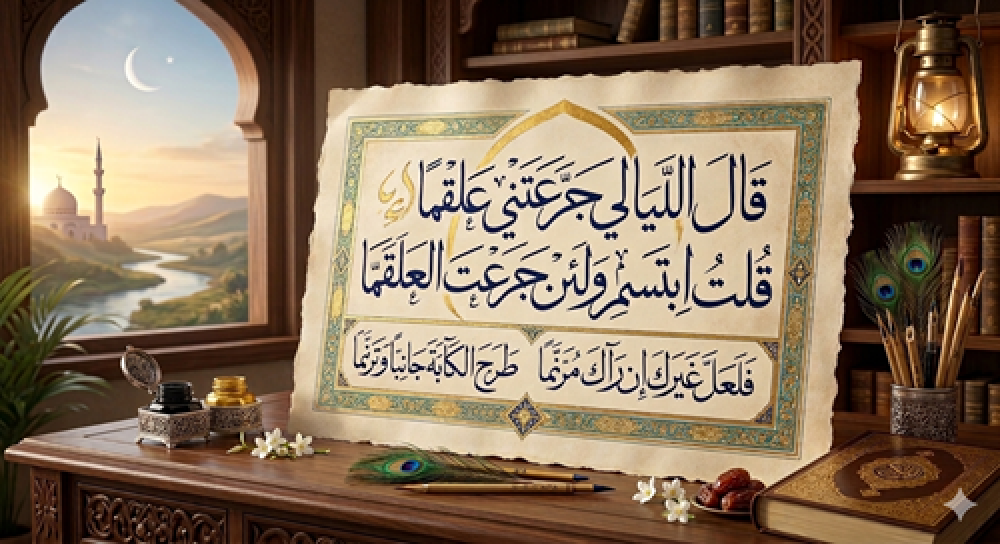 قَالَ اللَّيَالِي جَرَّعَتْنِي عَلْقَمًا
قُلْتُ اِبْتَسِمْ وَلَئِنْ جَرَعْتَ العَلْقَمَا
فَلَعَلَّ غَيْرَكَ إِن رَآكَ مُرَنَّمًا طَرَحَ الكَآبَةَ جَانِبًا وَتَرَنَّمَا